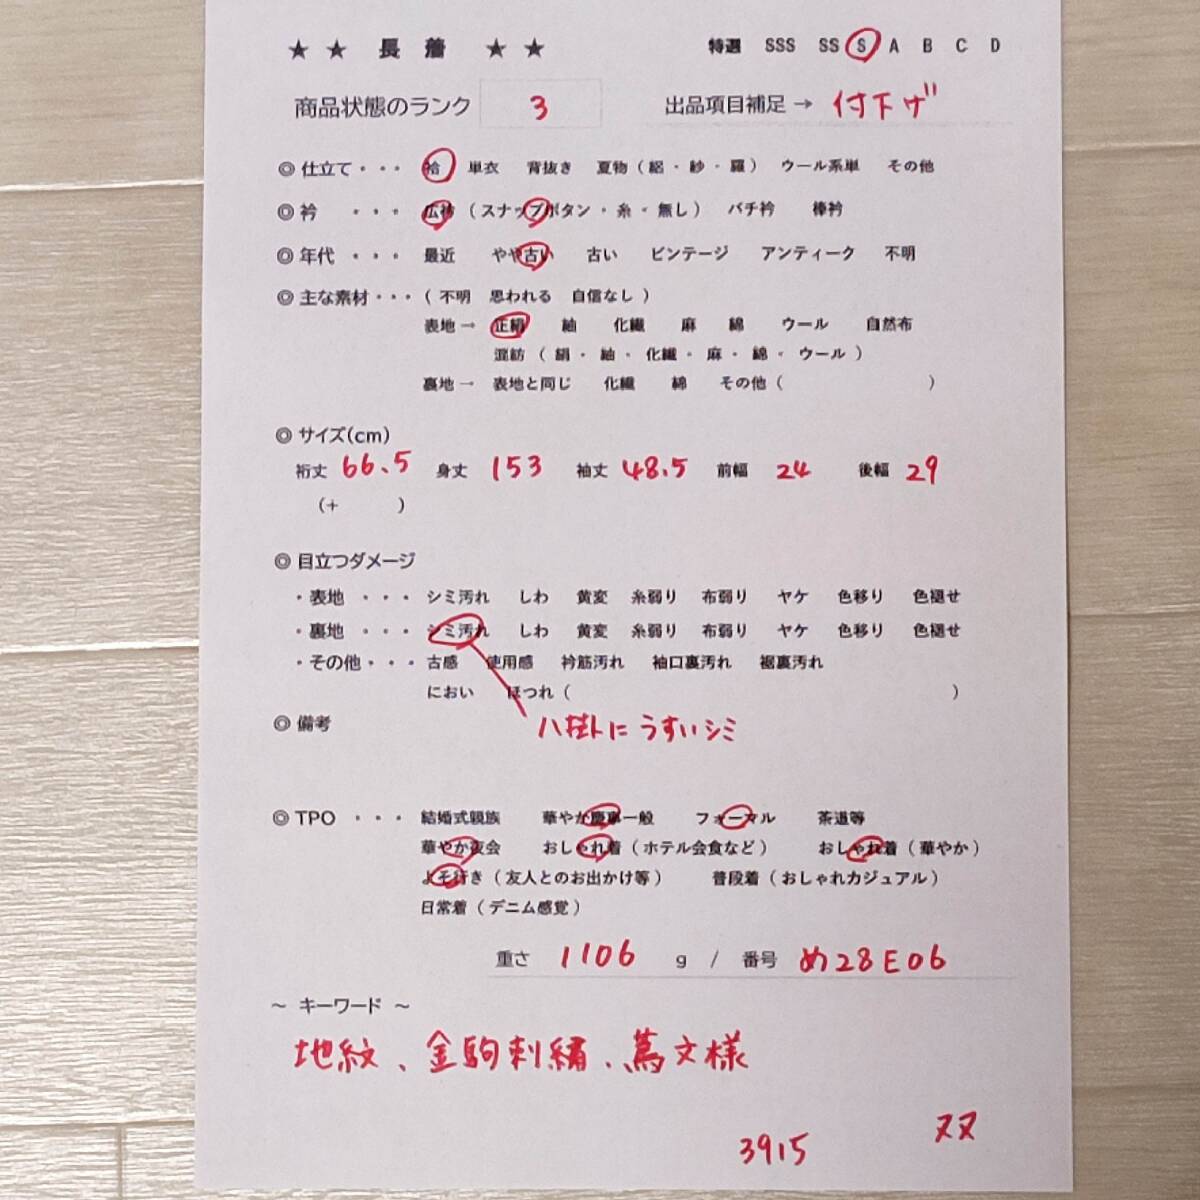 ★ ★ 長 着 ★ ★ 特選 SSS SS S A B C D
商品状態のランク 3 出品項目補足 → 付下げ
◎ 仕立て・・・ 袷 単衣 背抜き 夏物（絽・紗・羅） ウール系単 その他
◎ 衿 ・・・ 広衿（スナップボタン・糸・無し） バチ衿 棒衿
◎ 年代 ・・・ 最近 やや古い 古い ビンテージ アンティーク 不明
◎ 主な素材・・・（不明 思われる 自信なし）
表地→ 正絹 紬 化繊 麻 綿 ウール 自然布
混紡（絹・紬・化繊・麻・綿・ウール）
裏地→ 表地と同じ 化繊 綿 その他（ ）
◎ サイズ(cm)
裄丈 66.5 身丈 153 袖丈 48.5 前幅 24 後幅 29
（+ ）
◎ 目立つダメージ
・表地 ・・・ シミ汚れ しわ 黄変 糸弱り 布弱り ヤケ 色移り 色褪せ
・裏地 ・・・ シミ汚れ しわ 黄変 糸弱り 布弱り ヤケ 色移り 色褪せ
・その他・・・ 古感 使用感 衿筋汚れ 袖口裏汚れ 裾裏汚れ
におい ほつれ（ ）
◎ 備考 八掛トに うすいシミ
◎ TPO ・・・ 結婚式親族 華やか慶事一般 フォーマル 茶道等
華やか夜会 おしゃれ着（ホテル会食など） おしゃれ着（華やか）
よそ行き（友人とのお出かけ等） 普段着（おしゃれカジュアル）
日常着（デニム感覚）
重さ 1106 g / 番号 め28E06
～ キーワード ～
地紋、金駒刺繍、蔦文様
3915 ヌヌ